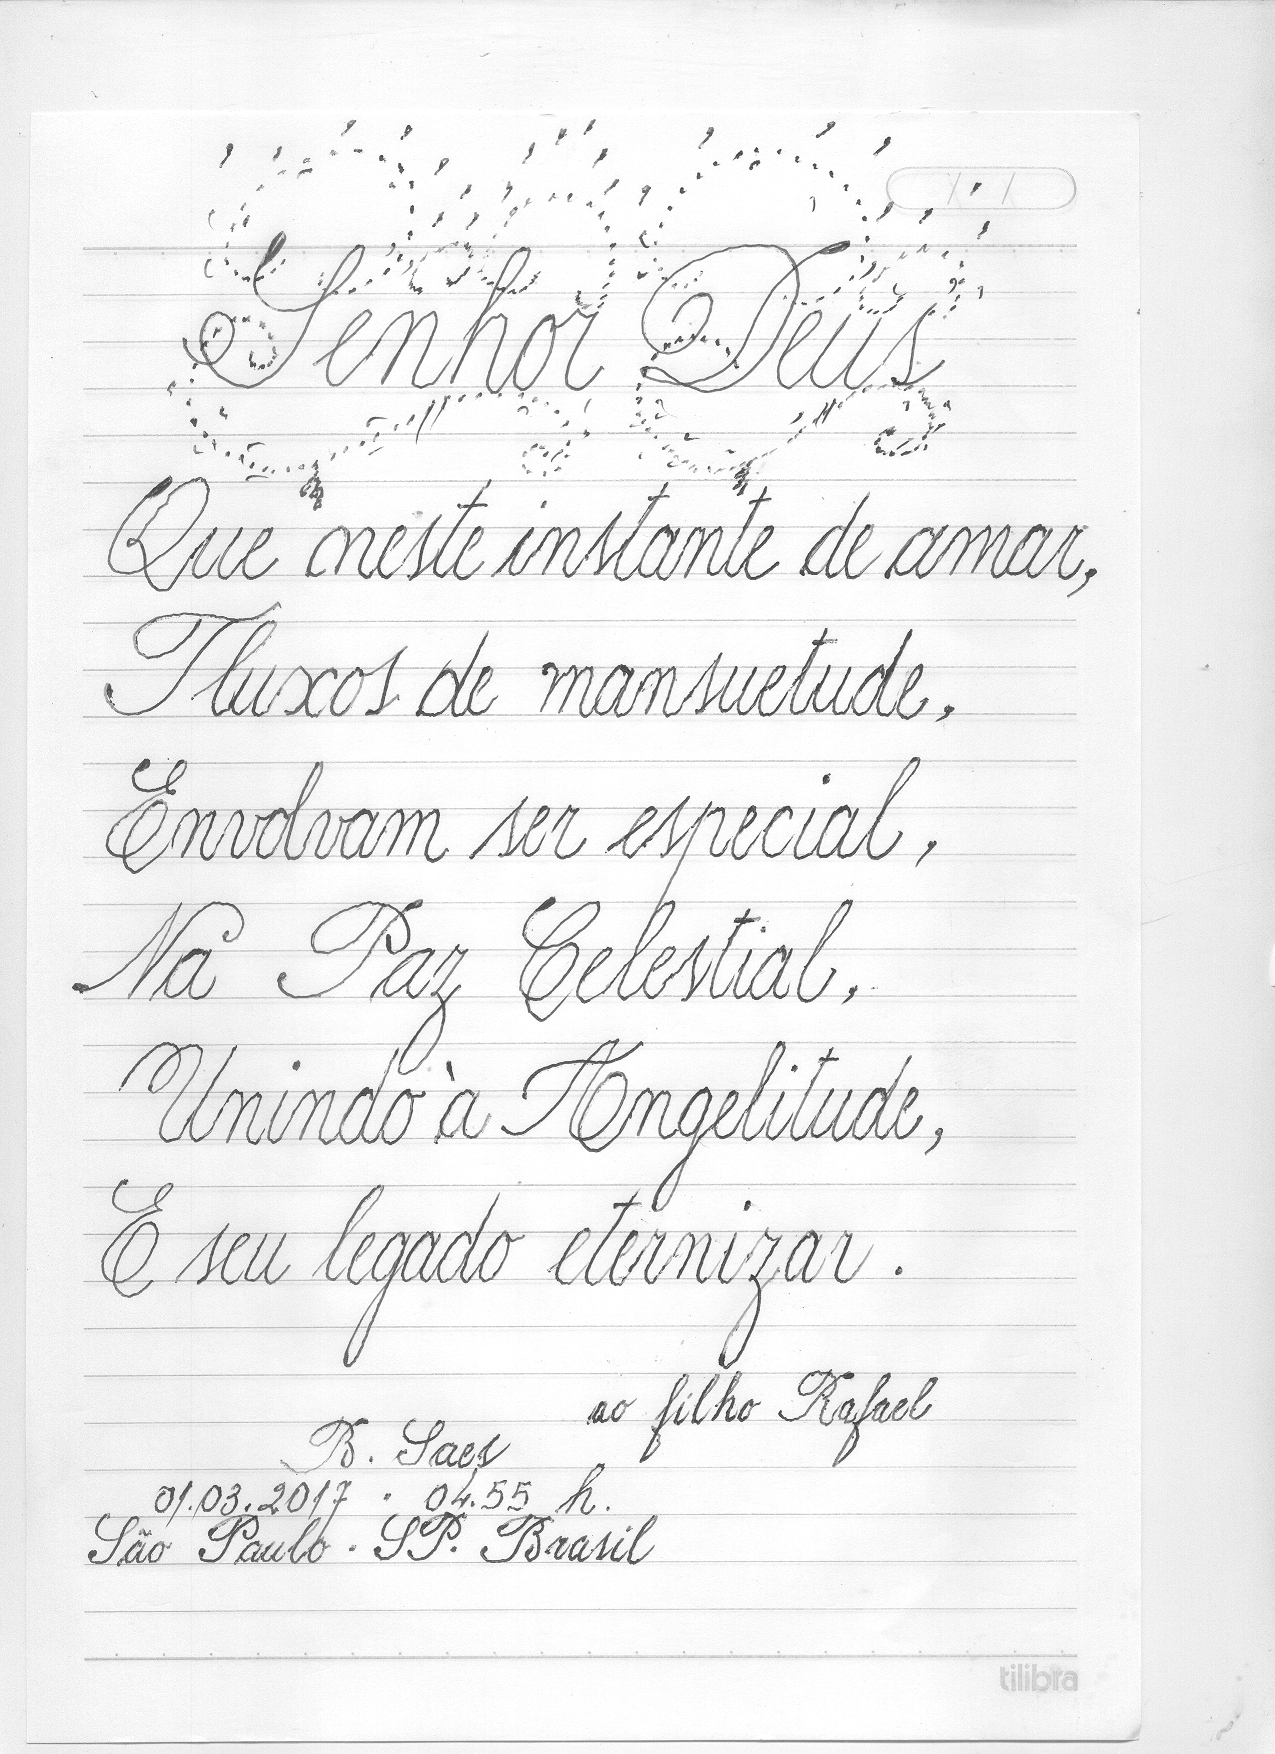 Senhor Deus
Que neste instante de amar,
Fluxos de mansuetude,
Envolvam ser especial,
Na Paz Celestial,
Unindo à Angelitude,
E seu legado eternizar.
ao filho Rafael
R. Saes
01.03.2017 . 04.55 h.
São Paulo . SP. Brasil
tilibra